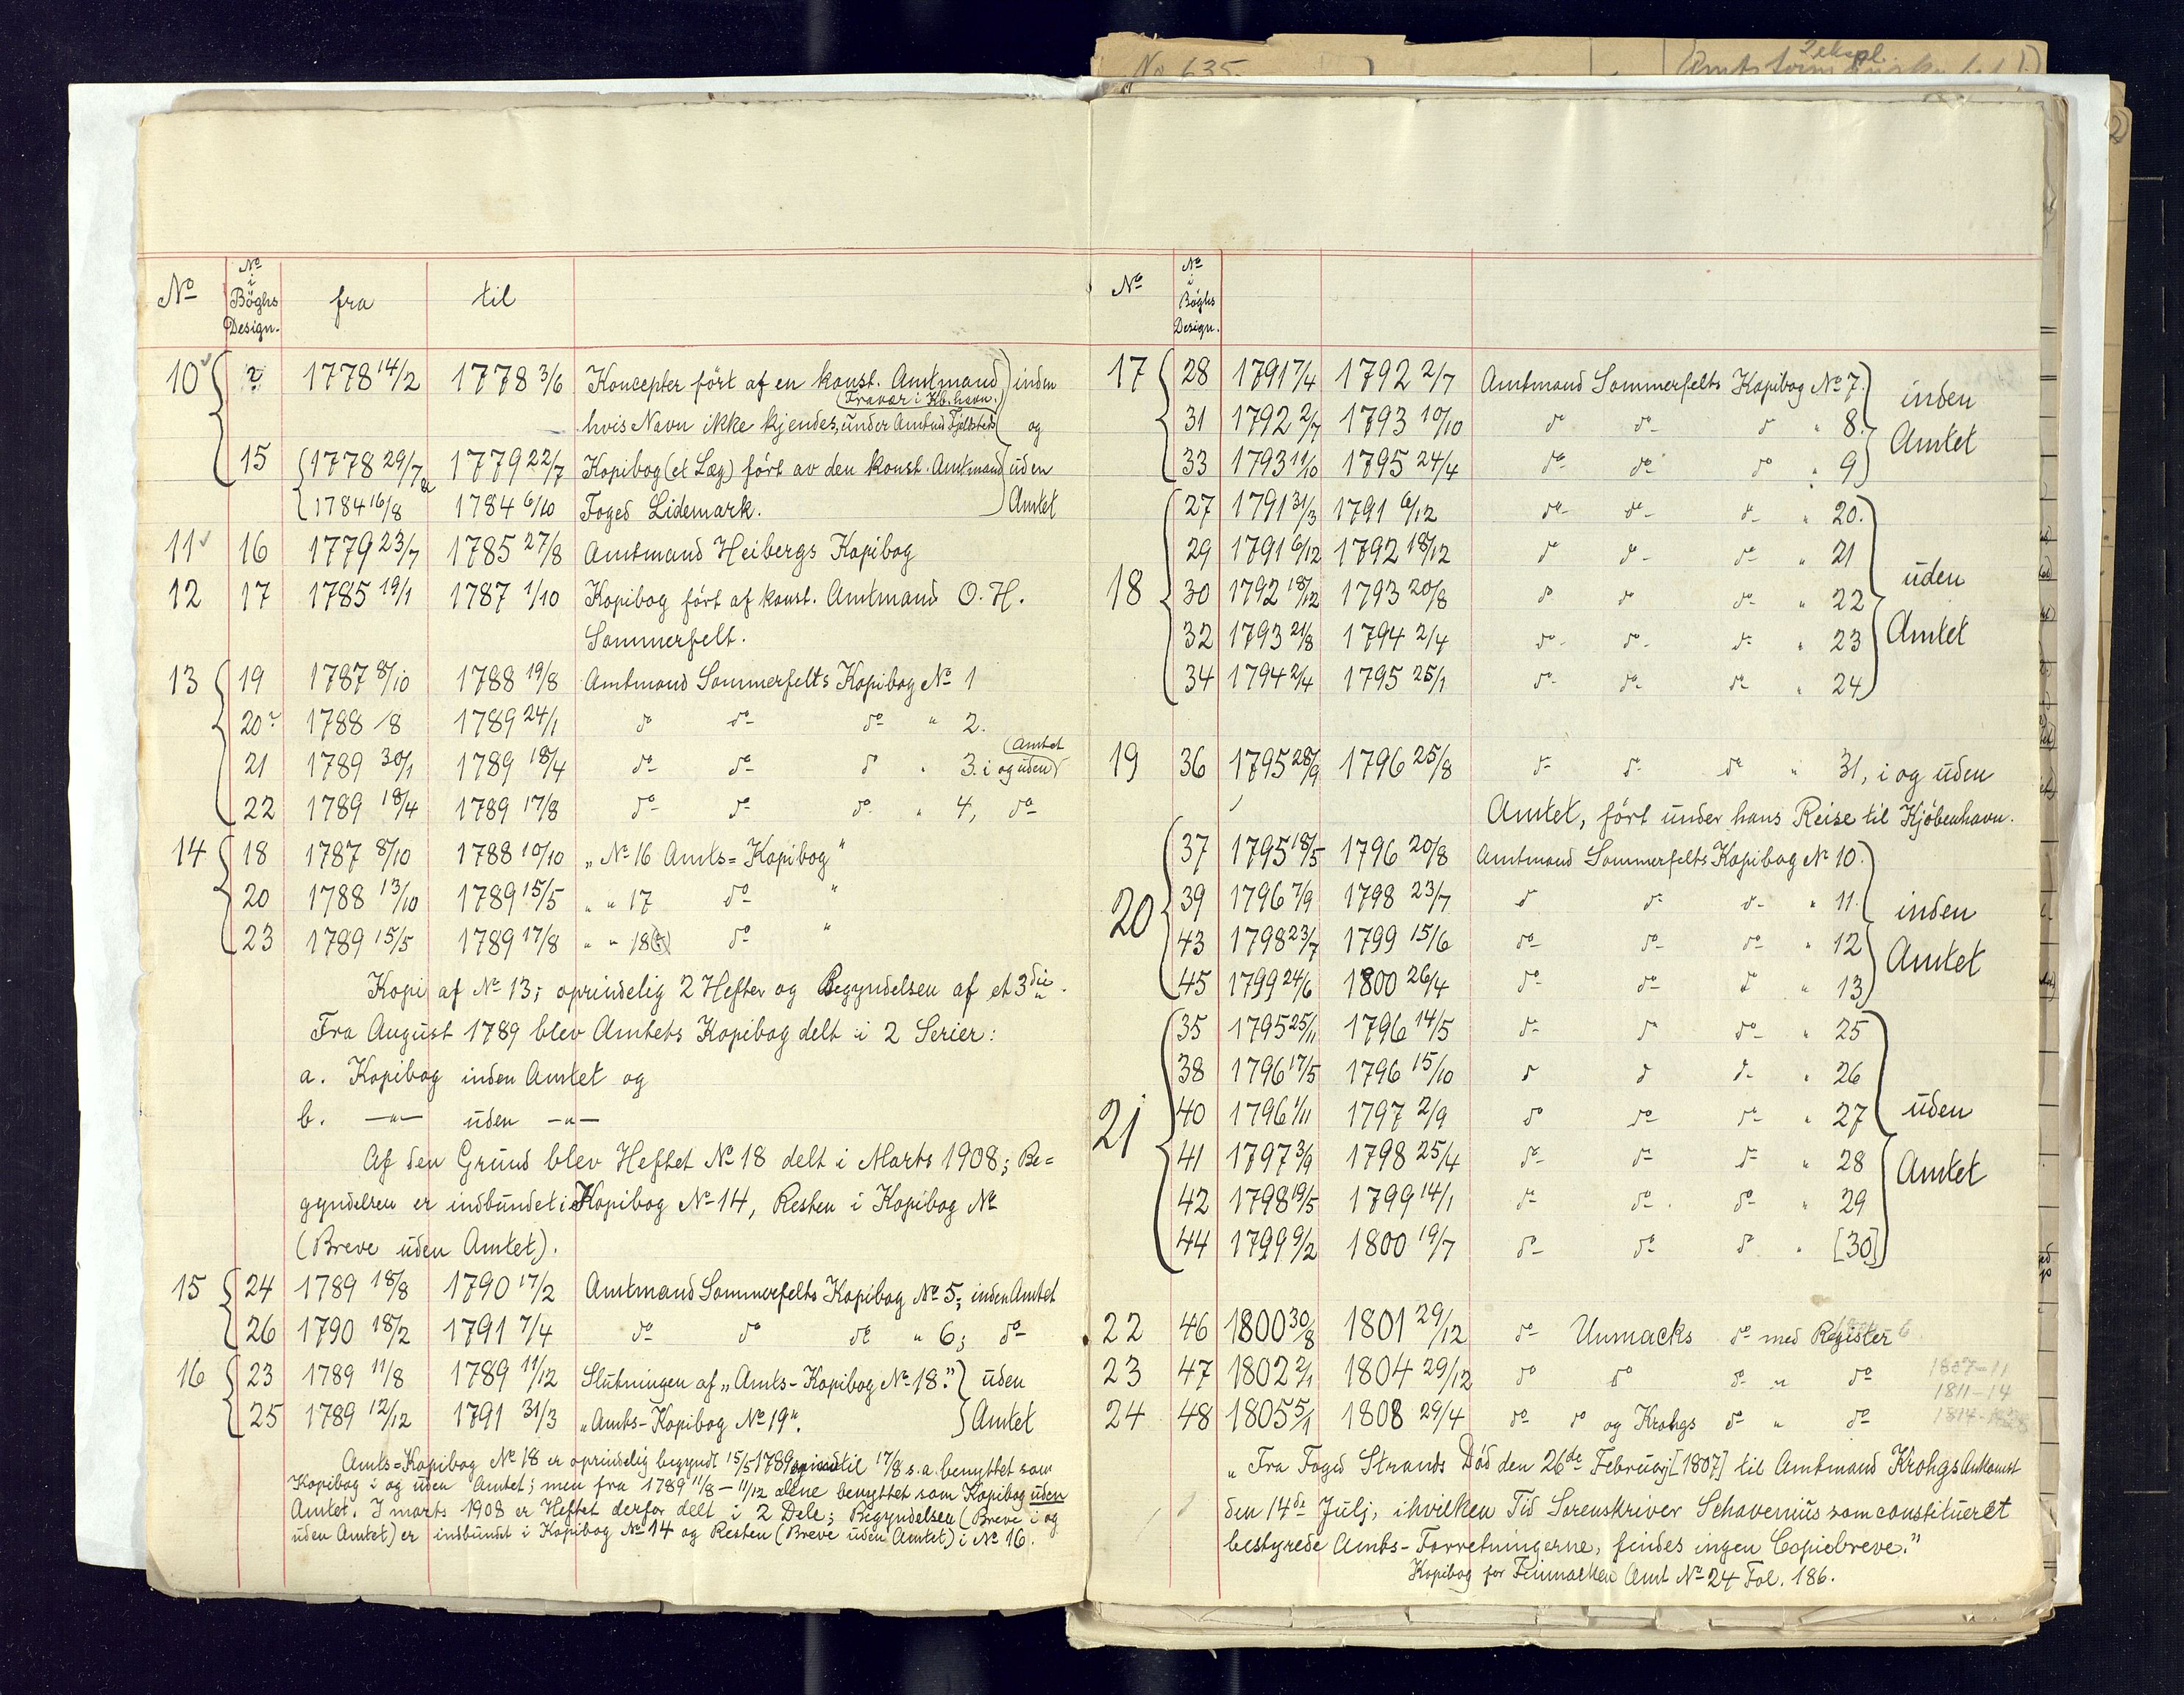 No 635.
2 ekspl.
No
No i Böghs Design.
fra
til
10 ? 1778 14/2 1778 3/6 Koncepter ført af en konst. Amtmand inden
(Fravær i Kb.havn.)
hvis Navn ikke kjendes, under Amtmd Fjeldsteds og
15 1778 29/7 1779 22/7 Kopibog (et Læg) ført av den konst. Amtmand uden
1784 16/8 1784 6/10 Foged Lidemark. Amtet
11 16 1779 23/7 1785 27/8 Amtmand Heibergs Kopibog
12 17 1785 19/1 1787 1/10 Kopibog ført af konst. Amtmand O. H.
Sommerfelt.
13 19 1787 8/10 1788 19/8 Amtmand Sommerfelts Kopibog No 1
20? 1788 /8 1789 24/1 do do do " 2.
(Amtet
21 1789 30/1 1789 18/4 do do do " 3. i og uden)
22 1789 18/4 1789 17/8 do do do " 4, do
14 18 1787 8/10 1788 10/10 „No 16 Amts=Kopibog"
20 1788 13/10 1789 15/5 „ " 17 do "
23 1789 15/5 1789 17/8 „ " 18 do "
Kopi af No 13; oprindelig 2 Hefter og Begyndelsen af et 3die.
Fra August 1789 blev Amtets Kopibog delt i 2 Serier:
a. Kopibog inden Amtet og
b. —"— uden —"—
Af den Grund blev Heftet No 18 delt i Marts 1908; Be=
gyndelsen er indbundet i Kopibog No 14, Resten i Kopibog No
(Breve uden Amtet).
15 24 1789 18/8 1790 17/2 Amtmand Sommerfelts Kopibog No 5; inden Amtet
26 1790 18/2 1791 7/4 do do do " 6; do
16 23 1789 11/8 1789 11/12 Slutningen af „Amts-Kopibog No 18." uden
25 1789 12/12 1791 31/3 „Amts-Kopibog No 19". Amtet
Amts=Kopibog No 18 er oprindelig begyndt 15/5 1789 til 17/8 s.a. benyttet som
Kopibog i og uden Amtet; men fra 1789 11/8 – 11/12 alene benyttet som Kopibog uden
Amtet. I marts 1908 er Heftet derfor delt i 2 Dele; Begyndelsen (Breve i og
uden Amtet) er indbundet i Kopibog No 14 og Resten (Breve uden Amtet) i No 16.
No
No i Böghs Design.
17 28 1791 7/4 1792 2/7 Amtmand Sommerfelts Kopibog No 7. inden
31 1792 2/7 1793 10/10 do do do " 8. Amtet
33 1793 11/10 1795 24/4 do do do " 9
27 1791 31/3 1791 6/12 do do do " 20.
29 1791 6/12 1792 18/12 do do do " 21 uden
18 30 1792 18/12 1793 20/8 do do do " 22
32 1793 21/8 1794 2/4 do do do " 23 Amtet
34 1794 2/4 1795 25/1 do do do " 24
19 36 1795 28/9 1796 25/8 do do do " 31, i og uden
Amtet, ført under hans Reise til Kjöbenhavn.
37 1795 18/5 1796 20/8 Amtmand Sommerfelts Kopibog No 10.
20 39 1796 7/9 1798 23/7 do do do " 11. inden
43 1798 23/7 1799 15/6 do do do " 12 Amtet
45 1799 24/6 1800 26/4 do do do " 13
35 1795 25/11 1796 14/5 do do do " 25
38 1796 17/5 1796 15/10 do do do " 26
21 40 1796 1/11 1797 2/9 do do do " 27 uden
41 1797 3/9 1798 25/4 do do do " 28 Amtet
42 1798 19/5 1799 14/1 do do do " 29
44 1799 9/2 1800 19/7 do do do " [30]
22 46 1800 30/8 1801 29/12 do Unmacks do med Register
23 47 1802 2/1 1804 29/12 do do do " do 1807-11
1811-14
24 48 1805 5/1 1808 29/4 do do og Krohgs do " do
„Fra Foged Strands Död den 26de Februarj [1807] til Amtmand Krohgs Ankomst
den 14de Julj, i hvilken Tid Sorenskriver Schavenius som constitueret
bestyrede Amts-Forretningerne, findes ingen Copiebreve."
Kopibog for Finmarken Amt No 24 Fol. 186.